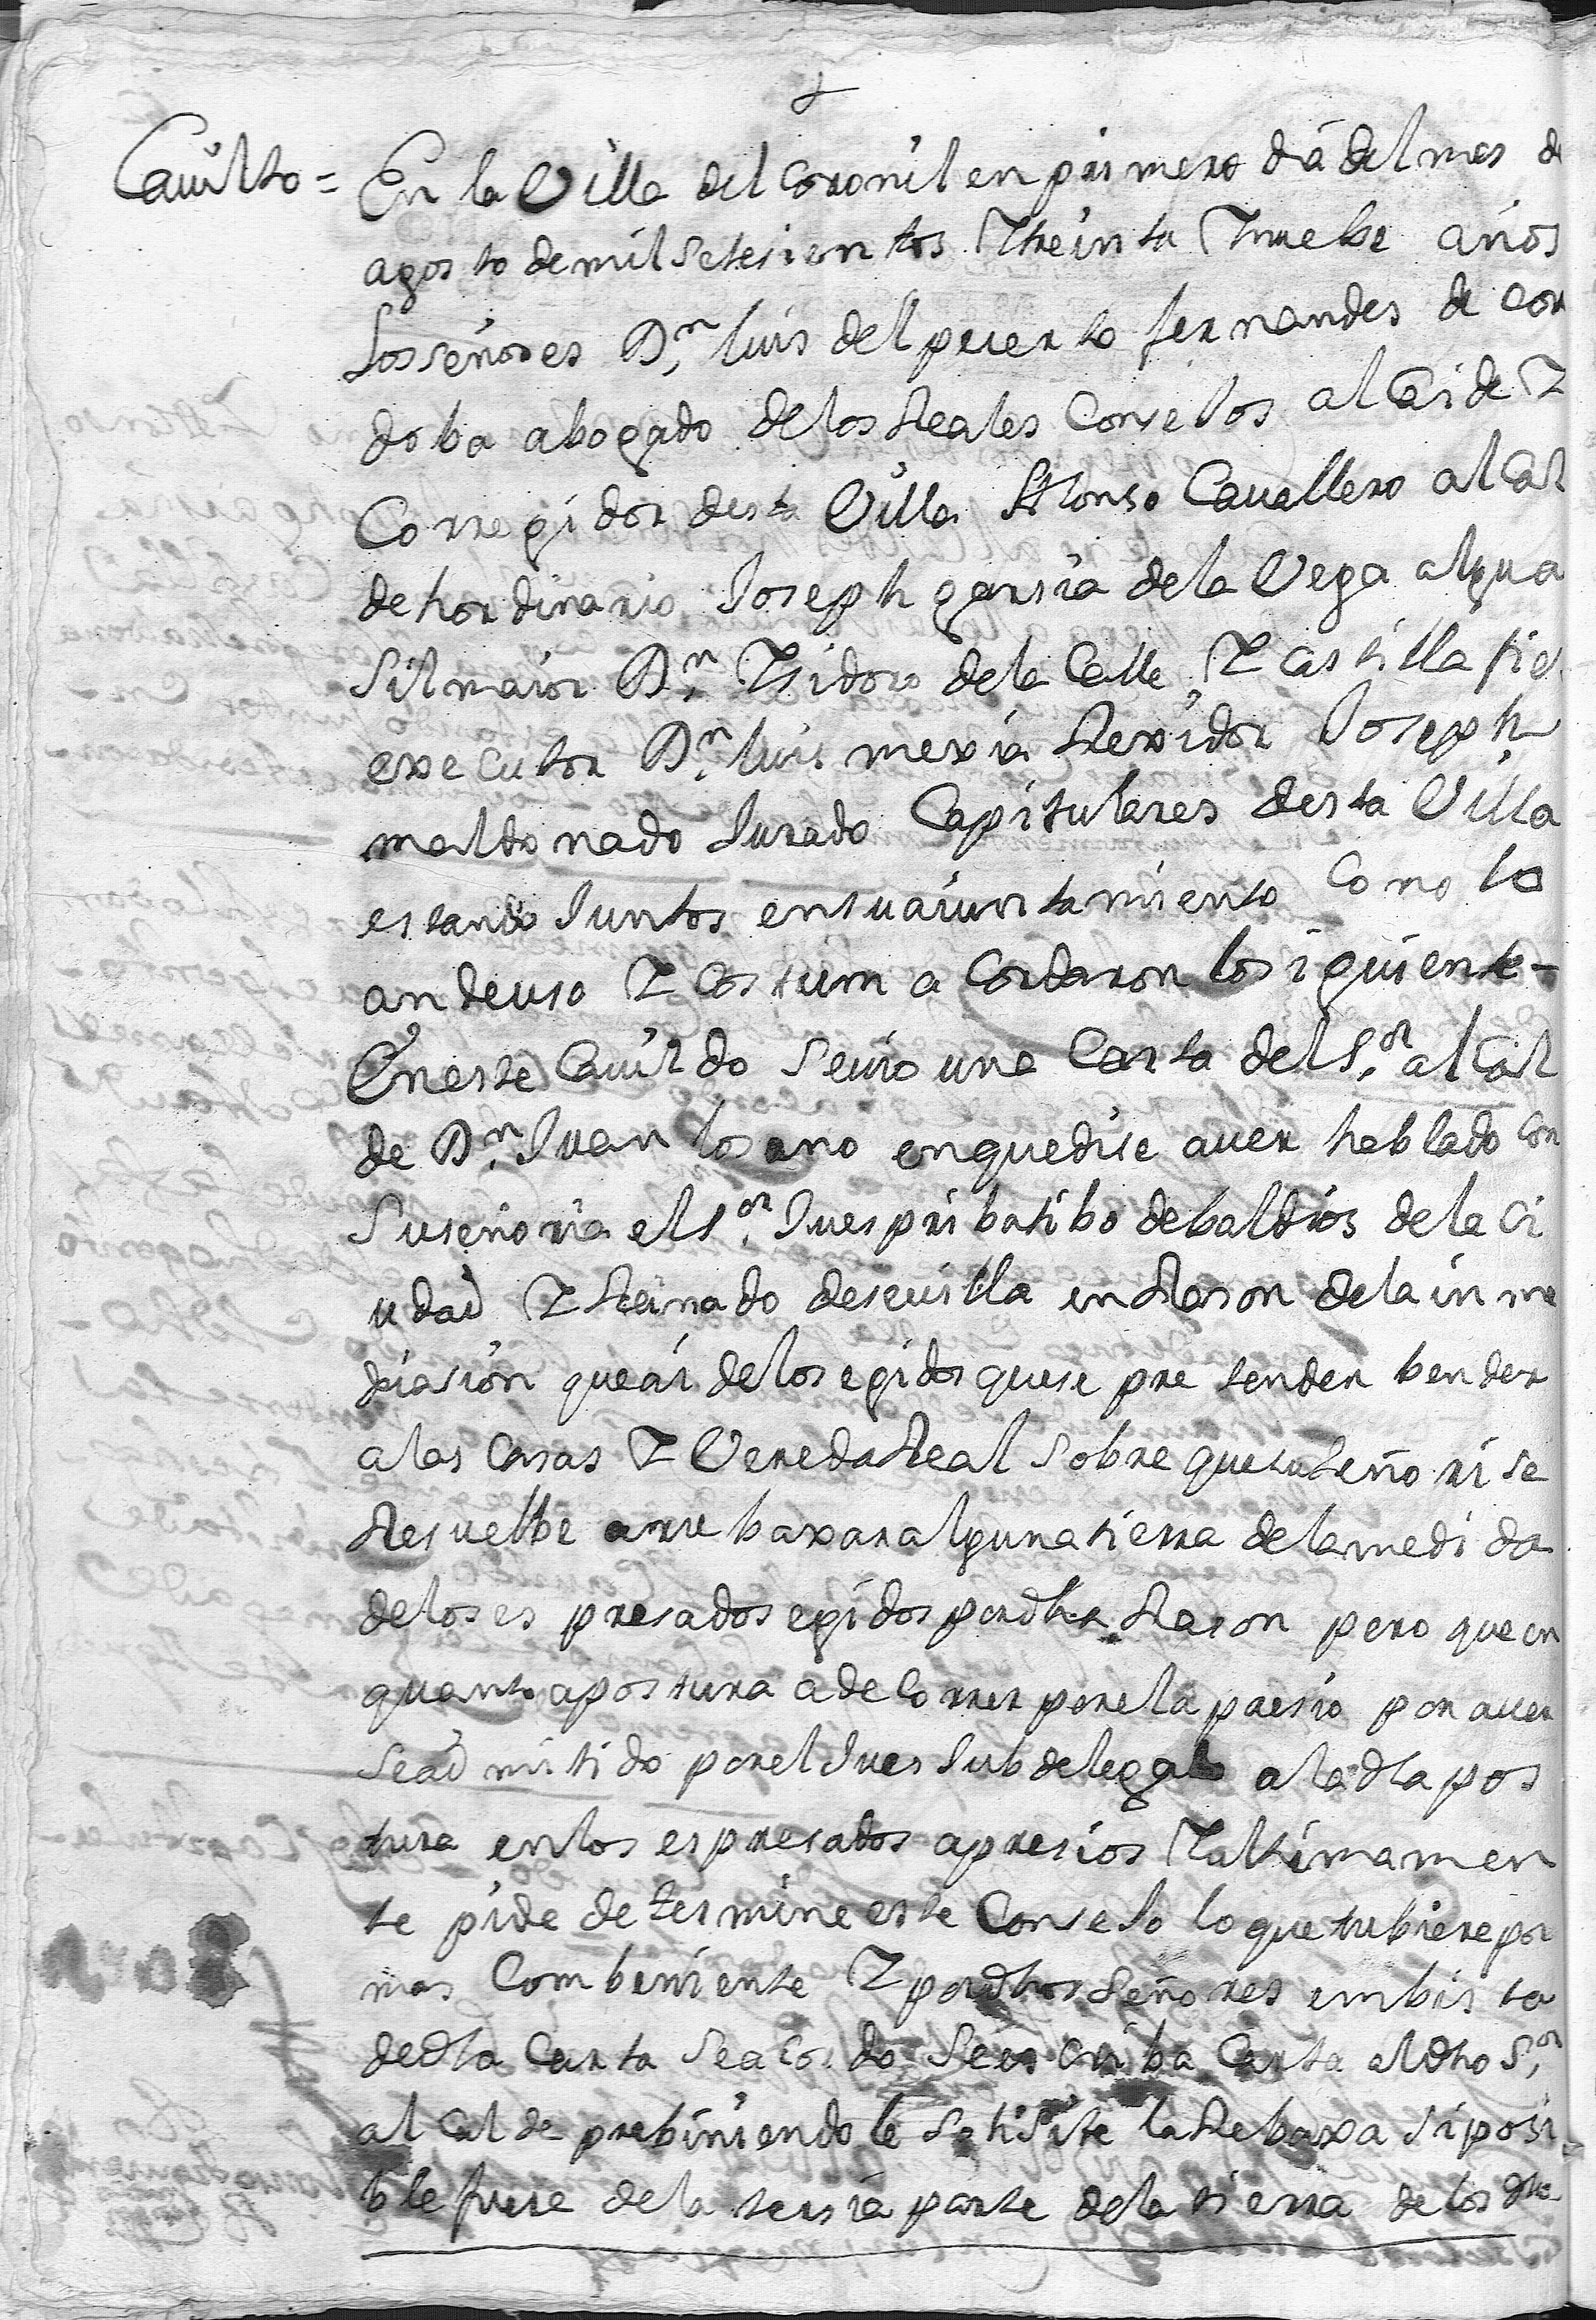 Cauildo = En la Villa del Coronil en primero dia del mes de
agosto de mil setesientos Y treinta Y nuebe años
los señores Dn. luis del puerto fernandes de cor
doba abogado de los Reales Conselos alCaide Y
Corregidor desta Villa Alonso Cauallero alCal
de hordinario Joseph garsia de la Vega algua
sil maior Dn. Ysidoro de la Calle Y Castilla fiel
executor Dn. luis mexia Rexidor Joseph
maldonado Jurado Capitulares desta Villa
estando Juntos en su aiuntamiento Como lo
an de uso Y Costum acordaron lo siguiente -
En este Cauildo se uio una Carta del Sor. alCal
de Dn. Juan losano en que dise auer hablado con
Su señoria el Sor. Jues pribatibo de baldios de la ci
udad Y Reinado de seuilla en Rason de la inme
diasion que ai de los egidos que se pretenden bender
a las Casas Y Vereda Real sobre que su señori se
Resuelbe a rrebaxar alguna tierra de la medida
de los espresados egidos por dha Rason pero que en
quanto a postura a de Correr por el apresio por auer
se admitido por el Jues Subdelegad a la dha pos
tura en los espresados apresios Y ultimamen
te pide determine este Conselo lo que tubiere por
mas Combeniente Y por dhos Señores en bista
de dha Carta se acordo se escriba Carta al dho Sor.
alCalde prebiniendole solisite la Rebaxa si posi
ble fuere de la tersia parte de la tierra de los dhos